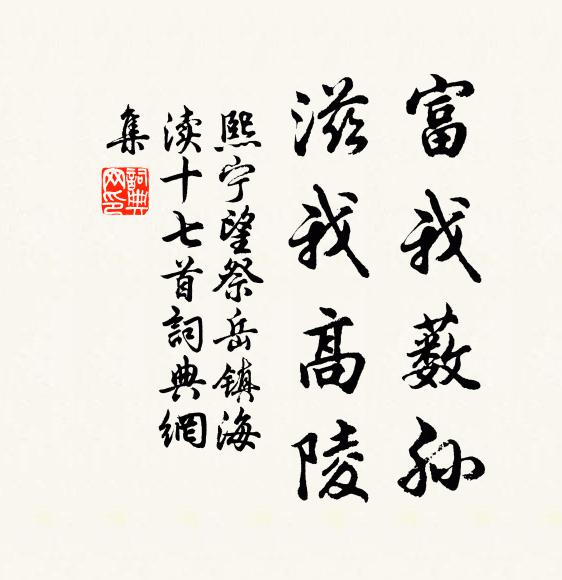 富我薮孙
滋我高陵
熙宁望祭岳镇海
渎十七首詞典網
集
詞典
网印